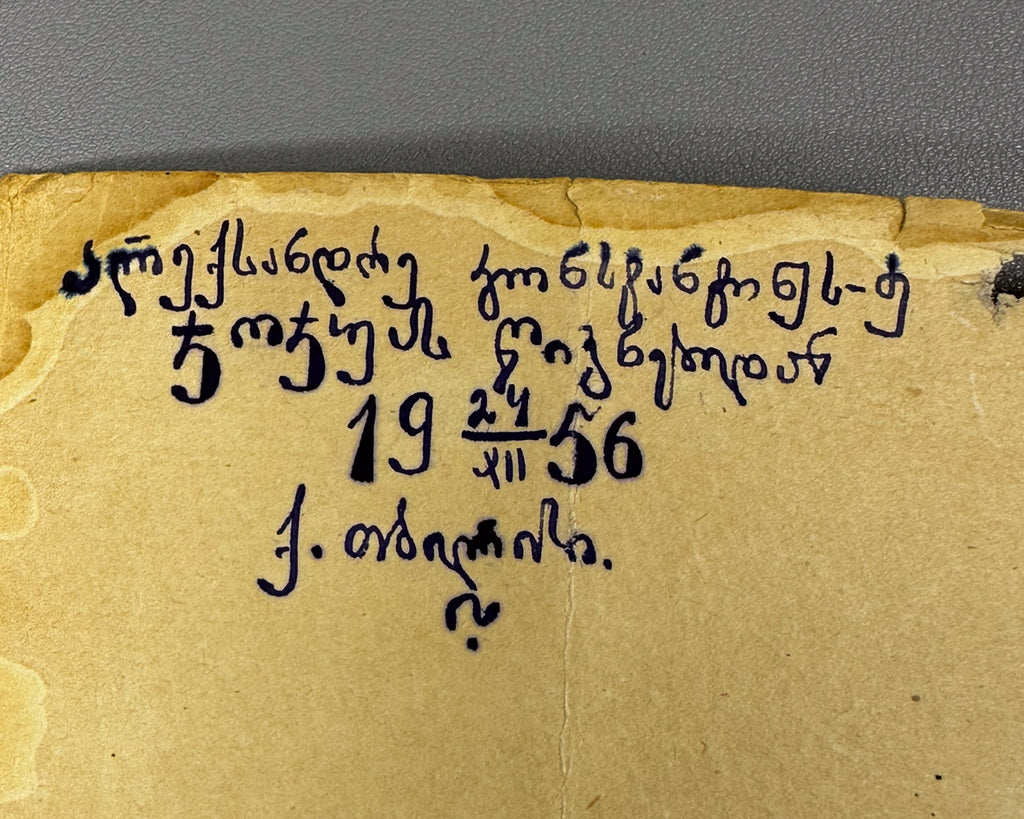 ალექსანდრე კონსტანტინეს-ძე
ჯოჯუას წიგნებიდან
19 24/XII 56
ქ. თბილისი.